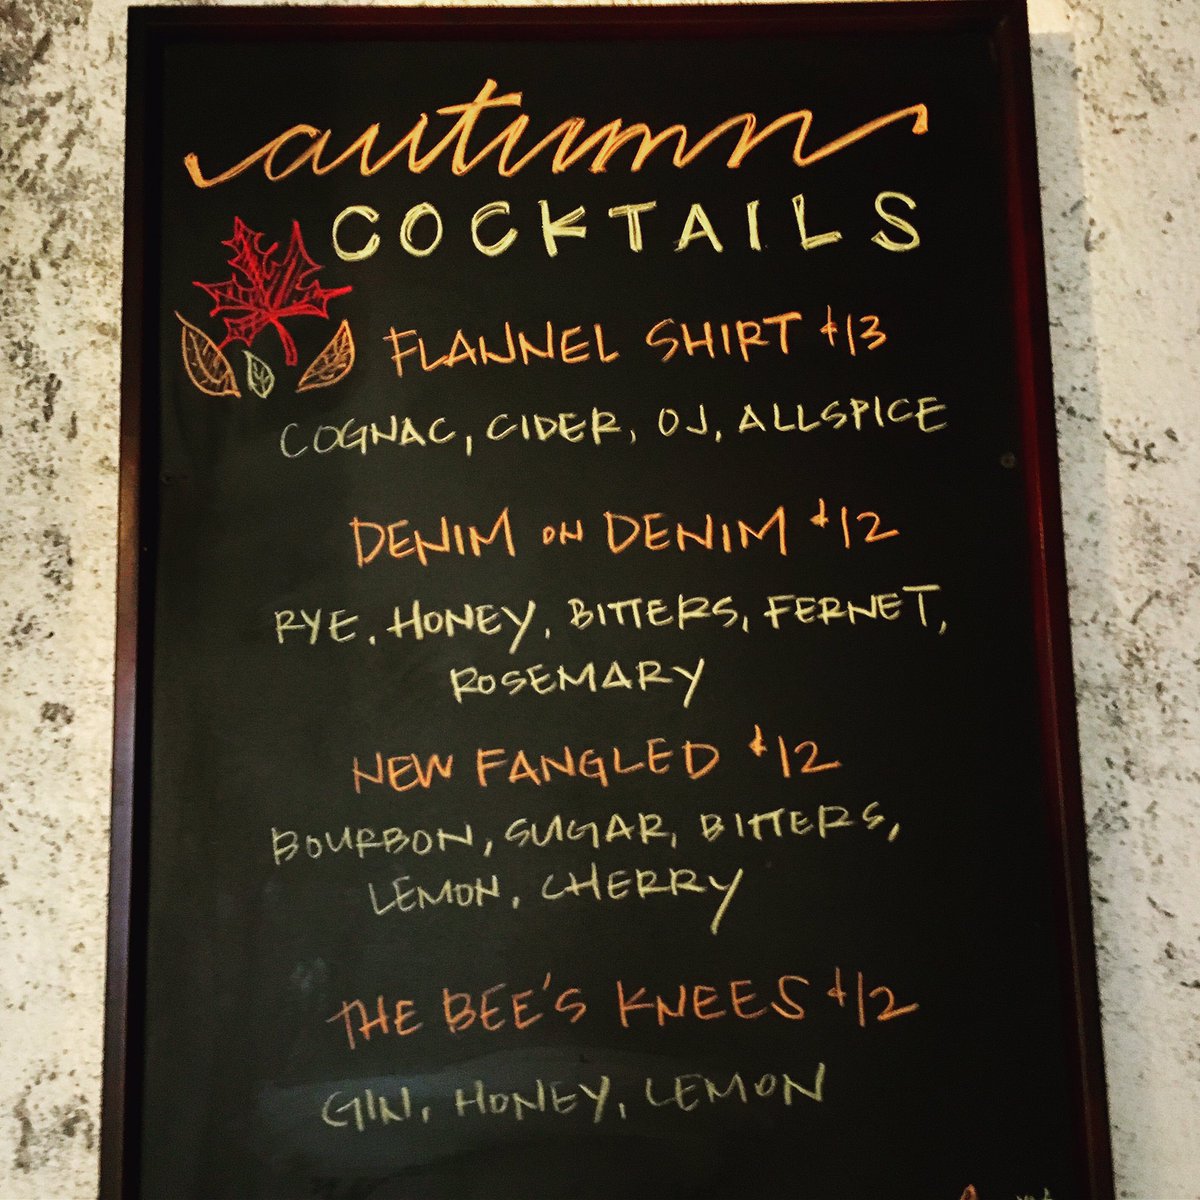 autumn
COCKTAILS
FLANNEL SHIRT $13
COGNAC, CIDER, OJ, ALLSPICE
DENIM ON DENIM $12
RYE, HONEY, BITTERS, FERNET,
ROSEMARY
NEW FANGLED $12
BOURBON, SUGAR, BITTERS,
LEMON, CHERRY
THE BEE'S KNEES $12
GIN, HONEY, LEMON